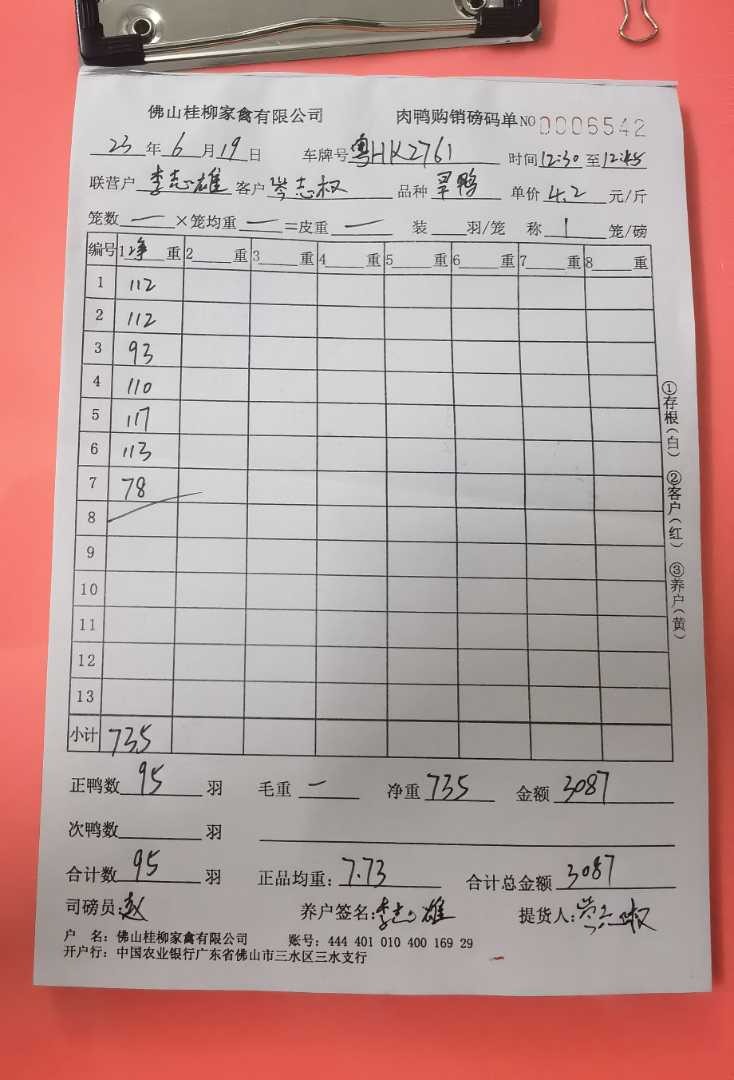 佛山桂柳家禽有限公司 肉鸭购销磅码单 NO 0006542
23年6月19日 车牌号 粤HK2761 时间12:30至12:45
联营户 李志雄 客户 岑志权 品种 旱鸭 单价 4.2 元/斤
笼数 — ×笼均重 — =皮重 — 装 羽/笼 称 1 笼/磅
编号 1 净 重 2 重 3 重 4 重 5 重 6 重 7 重 8 重
1 112
2 112
3 93
4 110
5 117
6 113
7 78
8
9
10
11
12
13
小计 735
正鸭数 95 羽 毛重 — 净重 735 金额 3087
次鸭数 羽
合计数 95 羽 正品均重: 7.73 合计总金额 3087
司磅员: 赵 养户签名: 李志雄 提货人:
户 名: 佛山桂柳家禽有限公司 账号: 444 401 010 400 169 29
开户行: 中国农业银行广东省佛山市三水区三水支行
①存根(白) ②客户(红) ③养户(黄)